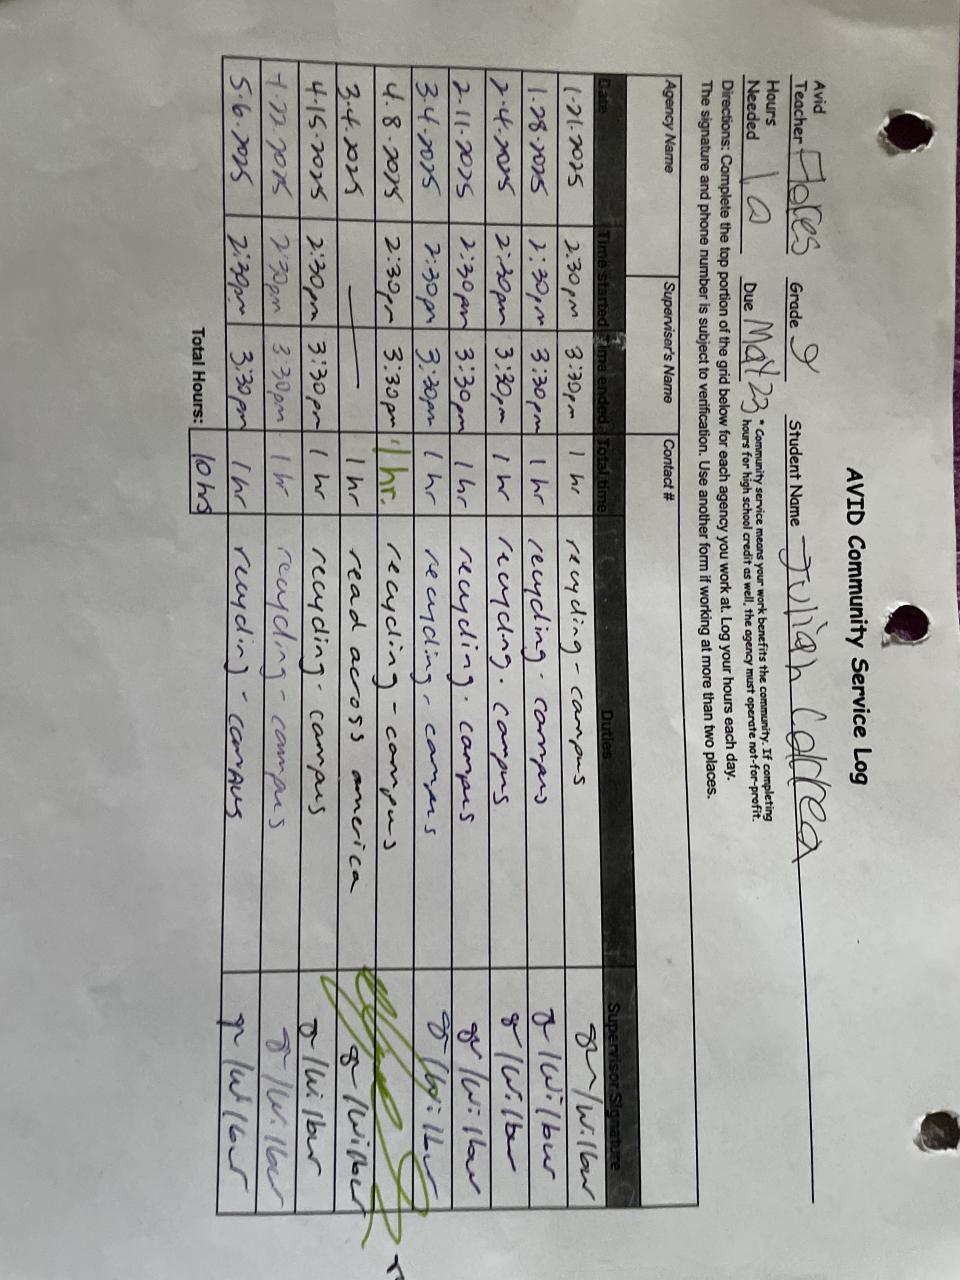 AVID Community Service Log
Avid
Teacher Flores Grade 9 Student Name Juliah Correa
Hours
Needed 10 Due May 23 * Community service means your work benefits the community. If completing
hours for high school credit as well, the agency must operate not-for-profit.
Directions: Complete the top portion of the grid below for each agency you work at. Log your hours each day.
The signature and phone number is subject to verification. Use another form if working at more than two places.
Agency Name Supervisor's Name Contact #
Date Time started Time ended Total time Duties Supervisor Signature
1.21.2025 2:30pm 3:30pm 1 hr recycling - campus /Wilbur
1.28.2025 2:30pm 3:30pm 1 hr recycling - campus /Wilbur
2.4.2025 2:30pm 3:30pm 1 hr recycling - campus /Wilbur
2.11.2025 2:30pm 3:30pm 1 hr recycling - campus /Wilbur
3.4.2025 2:30pm 3:30pm 1 hr recycling - campus /Wilbur
4.8.2025 2:30pm 3:30pm 1 hr. recycling - campus
3.4.2025 — 1 hr read across america /Wilbur
4.15.2025 2:30pm 3:30pm 1 hr recycling - campus /Wilbur
4.22.2025 2:30pm 3:30pm 1 hr recycling - campus /Wilbur
5.6.2025 2:30pm 3:30pm 1 hr recycling - campus /Wilbur
Total Hours: 10 hrs